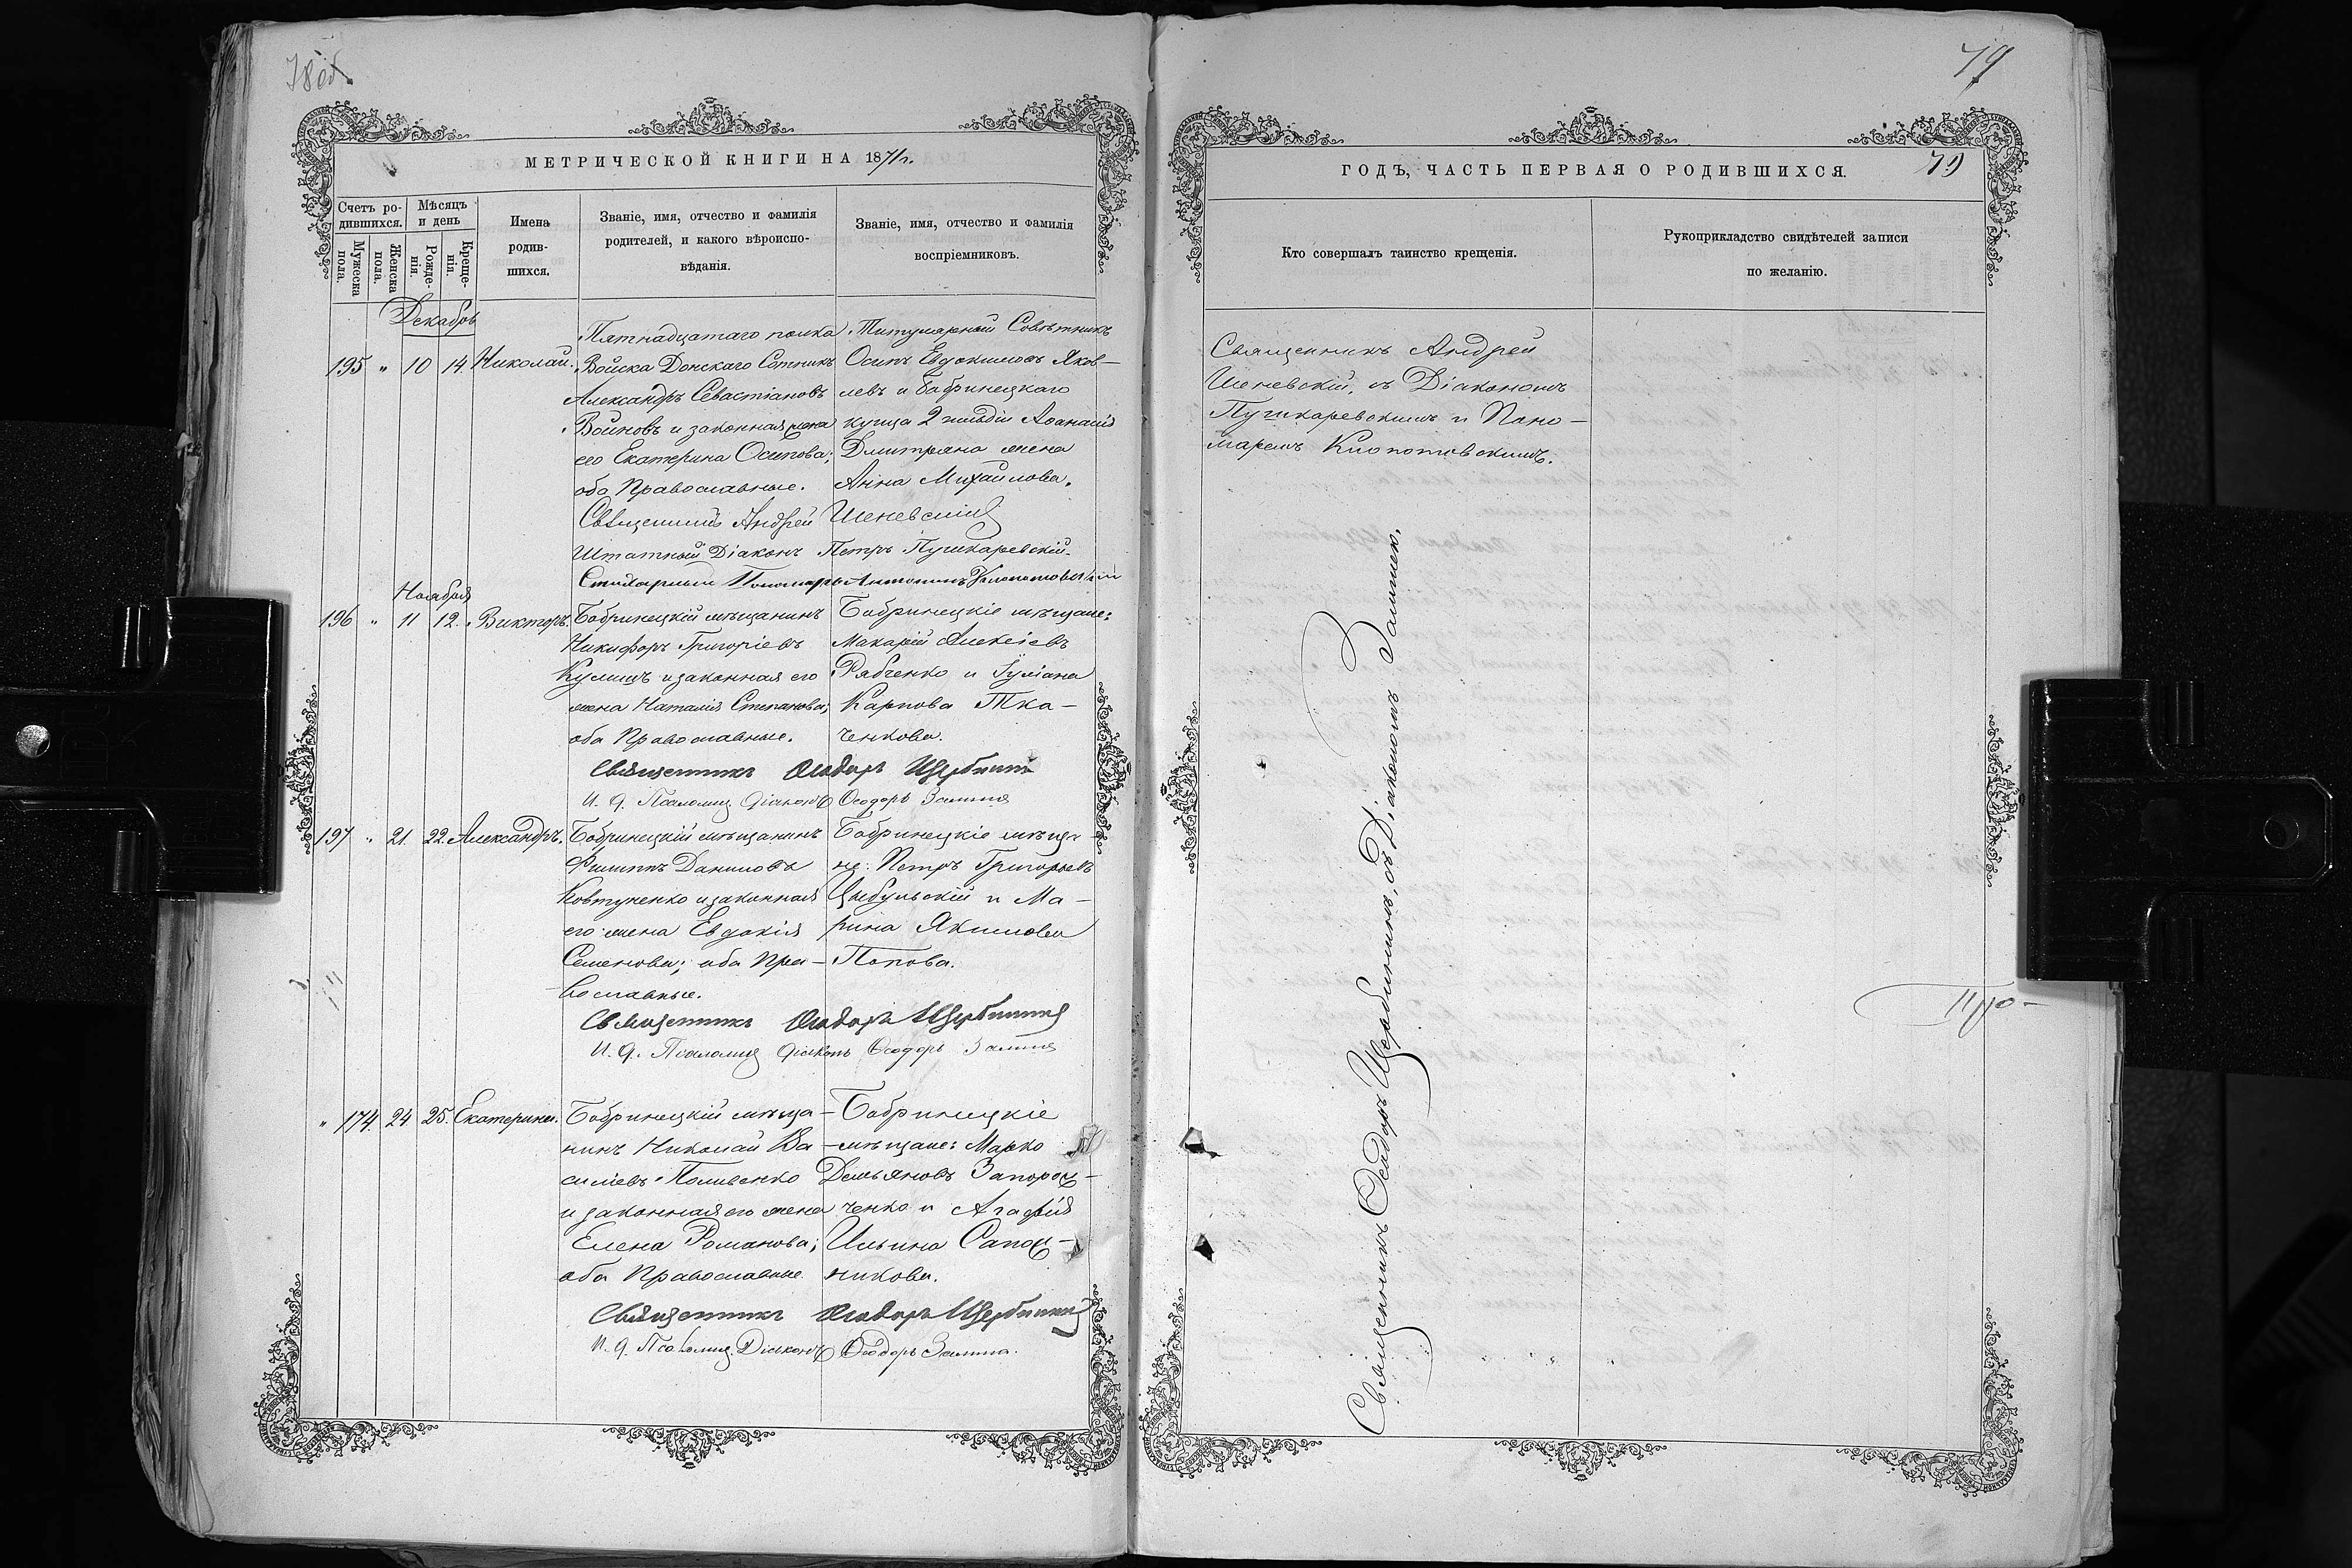 78об.
МЕТРИЧЕСКОЙ КНИГИ НА 1871 г.
Счетъ родившихся.
Мужеска пола.
Женска пола.
Мѣсяцъ и день
Рожденія.
Крещенія.
Имена родившихся.
Званіе, имя, отчество и фамилія
родителей, и какого вѣроиспо-
вѣданія.
Званіе, имя, отчество и фамилія
воспріемниковъ.
Декабрь
195 " 10 14. Николай.
Пятнадцатаго полка
Войска Донскаго Сотникъ
Александръ Севастіановъ
Войновъ и законная жена
его Екатерина Осипова;
оба Православные.
Титулярный Совѣтникъ
Осипъ Евдокимовъ Яков-
левъ и Бобринецкаго
купца 2 гильдіи Аѳанасія
Дмитряна жена
Анна Михайлова.
Священникъ Андрей Шеневскій
Штатный Діаконъ Петръ Пушкаревскій.
Стихарный Пономарь Антонинъ Клопотовскій
Ноября
196 " 11 12. Викторъ.
Бобринецкій мѣщанинъ
Никифоръ Григоріевъ
Кулишъ и законная его
жена Наталія Степанова;
оба Православные.
Бобринецкіе мѣщане:
Макарій Алексіевъ
Рябченко и Іуліана
Карпова Тка-
ченкова.
Священникъ Ѳеодоръ Щербининъ
И. д. Псаломщ. Діаконъ Ѳеодоръ
197 " 21. 22. Александръ.
Бобринецкій мѣщанинъ
Филиппъ Даниловъ
Ковтуненко и законная
его жена Евдокія
Семенова; оба Пра-
вославные.
Бобринецкіе мѣща-
не: Петръ Григорьевъ
Цыбульскій и Ма-
рина Якимова
Попова.
Священникъ Ѳеодоръ Щербининъ
И. д. Псаломщ. Діаконъ Ѳеодоръ
" 174. 24 25. Екатерина.
Бобринецкій мѣща-
нинъ Николай Ва-
силіевъ Поливенко
и законная его жена
Елена Романова;
оба Православные.
Бобринецкіе
мѣщане: Марко
Демьяновъ Запорож-
ченко и Агафія
Ильина Сапож-
никова.
Священникъ Ѳеодоръ Щербининъ
И. д. Псаломщ. Діаконъ Ѳеодоръ
79
79
ГОДЪ, ЧАСТЬ ПЕРВАЯ О РОДИВШИХСЯ.
Кто совершалъ таинство крещенія.
Рукоприкладство свидѣтелей записи
по желанію.
Священникъ Андрей
Шеневскій, съ Діакономъ
Пушкаревскимъ и Поно-
маремъ Клопотовскимъ.
Священникъ Ѳеодоръ Щербининъ, съ Діакономъ